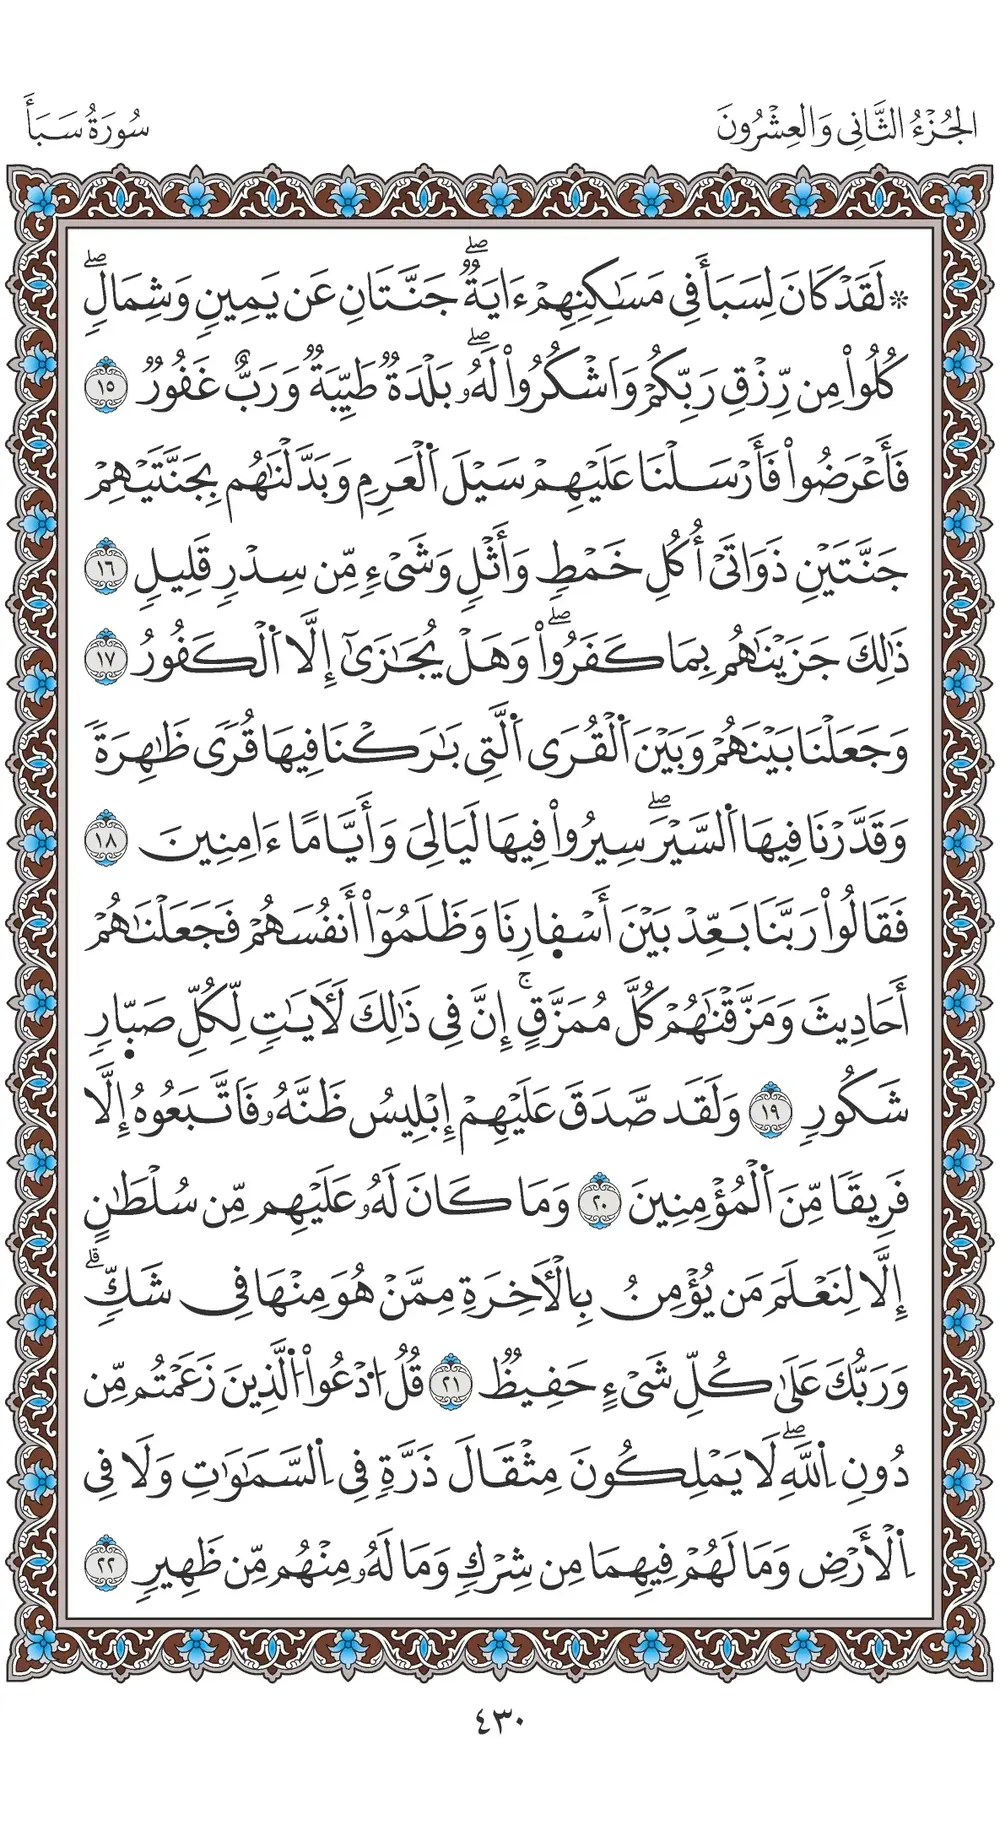 الجُزْءُ الثَّانِي وَالعِشْرُونَ
سُورَةُ سَبَأَ
۞ لَقَدْ كَانَ لِسَبَأَ فِي مَسَٰكِنِهِمْ ءَايَةٞۖ جَنَّتَانِ عَن يَمِينٖ وَشِمَالٖۖ
كُلُواْ مِن رِّزْقِ رَبِّكُمْ وَاَشْكُرُواْ لَهُۥۖ بَلْدَةٞ طَيِّبَةٞ وَرَبٌّ غَفُورٞ ١٥
فَأَعْرَضُواْ فَأَرْسَلْنَا عَلَيْهِمْ سَيْلَ اَلْعَرِمِ وَبَدَّلْنَٰهُم بِجَنَّتَيْهِمْ
جَنَّتَيْنِ ذَوَاتَىْ أُكُلِ خَمْطٖ وَأَثْلٖ وَشَىْءٖ مِّن سِدْرٖ قَلِيلٖ ١٦
ذَٰلِكَ جَزَيْنَٰهُم بِمَا كَفَرُواْۖ وَهَلْ يُجَٰزَىٰٓ إِلَّا اَلْكَفُورُ ١٧
وَجَعَلْنَا بَيْنَهُمْ وَبَيْنَ اَلْقُرَى اَلَّتِي بَٰرَكْنَا فِيهَا قُرٗى ظَٰهِرَةٗ
وَقَدَّرْنَا فِيهَا اَلسَّيْرَۖ سِيرُواْ فِيهَا لَيَالِيَ وَأَيَّامًا ءَامِنِينَ ١٨
فَقَالُواْ رَبَّنَا بَعِّدْ بَيْنَ أَسْفِارِنَا وَظَلَمُوٓاْ أَنفُسَهُمْ فَجَعَلْنَٰهُمْ
أَحَادِيثَ وَمَزَّقْنَٰهُمْ كُلَّ مُمَزَّقٍۚ إِنَّ فِي ذَٰلِكَ لَأٓيَٰتٖ لِّكُلِّ صَبِّارٖ
شَكُورٖ ١٩ وَلَقَد صَّدَقَ عَلَيْهِمْ إِبْلِيسُ ظَنَّهُۥ فَاَتَّبَعُوهُ إِلَّا
فَرِيقٗا مِّنَ اَلْمُؤْمِنِينَ ٢٠ وَمَا كَانَ لَهُۥ عَلَيْهِم مِّن سُلْطَٰنٍ
إِلَّا لِنَعْلَمَ مَن يُؤْمِنُ بِالْأٓخِرَةِ مِمَّنْ هُوَ مِنْهَا فِي شَكّٖۗ
وَرَبُّكَ عَلَىٰ كُلِّ شَىْءٍ حَفِيظٞ ٢١ قُلُ اُدْعُواْ اُلَّذِينَ زَعَمْتُم مِّن
دُونِ اِللَّهِۖ لَا يَمْلِكُونَ مِثْقَالَ ذَرَّةٖ فِي اِلسَّمَٰوَٰتِ وَلَا فِي
اِلْأَرْضِ وَمَا لَهُمْ فِيهِمَا مِن شِرْكٖ وَمَا لَهُۥ مِنْهُم مِّن ظَهِيرٖ ٢٢
٤٣٠